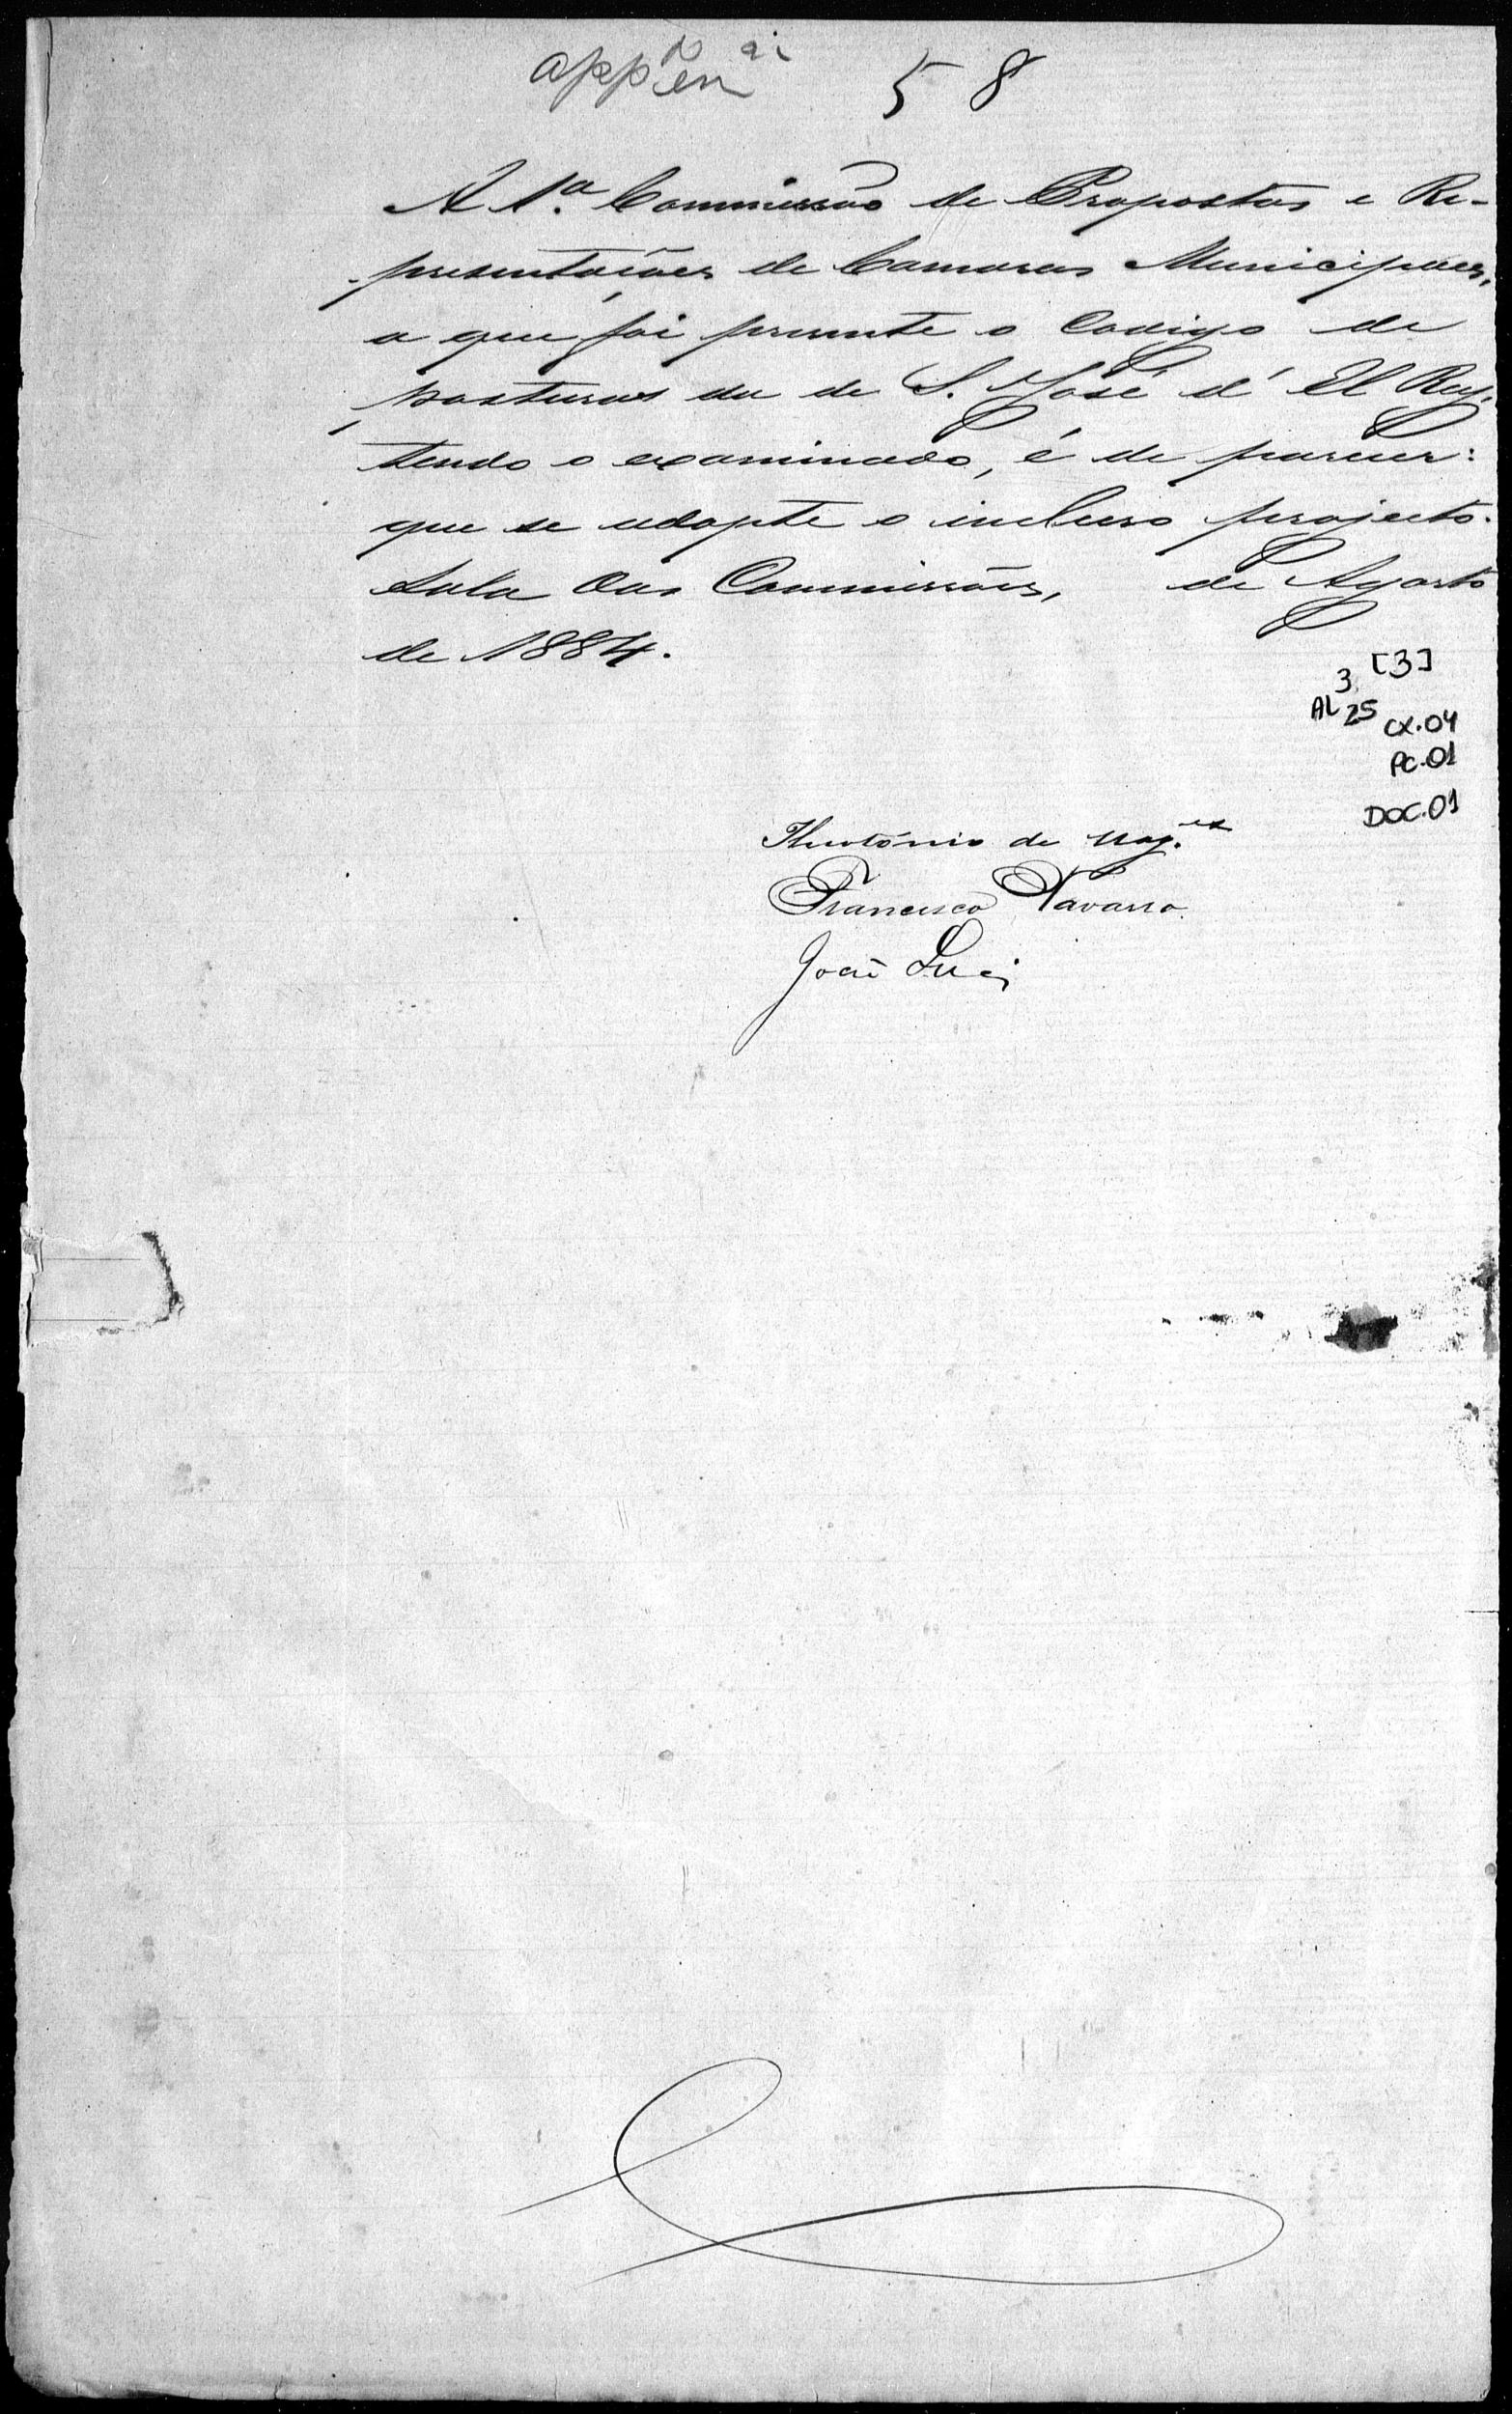 58
A 1.ª Commissão de Propostas e Re-
presentações de Camaras Municipaes,
a que foi presente o Codigo de
posturas da de S. José d'El Rey,
tendo o examinado, é de parecer:
que se adopte o incluso projecto.
Sala das Commissões, de Agosto
de 1884.
[3]
3
AL 25
CX.04
PC.01
DOC.01
Theotónio de Mag.es
Francisco Navarro.
João Luis